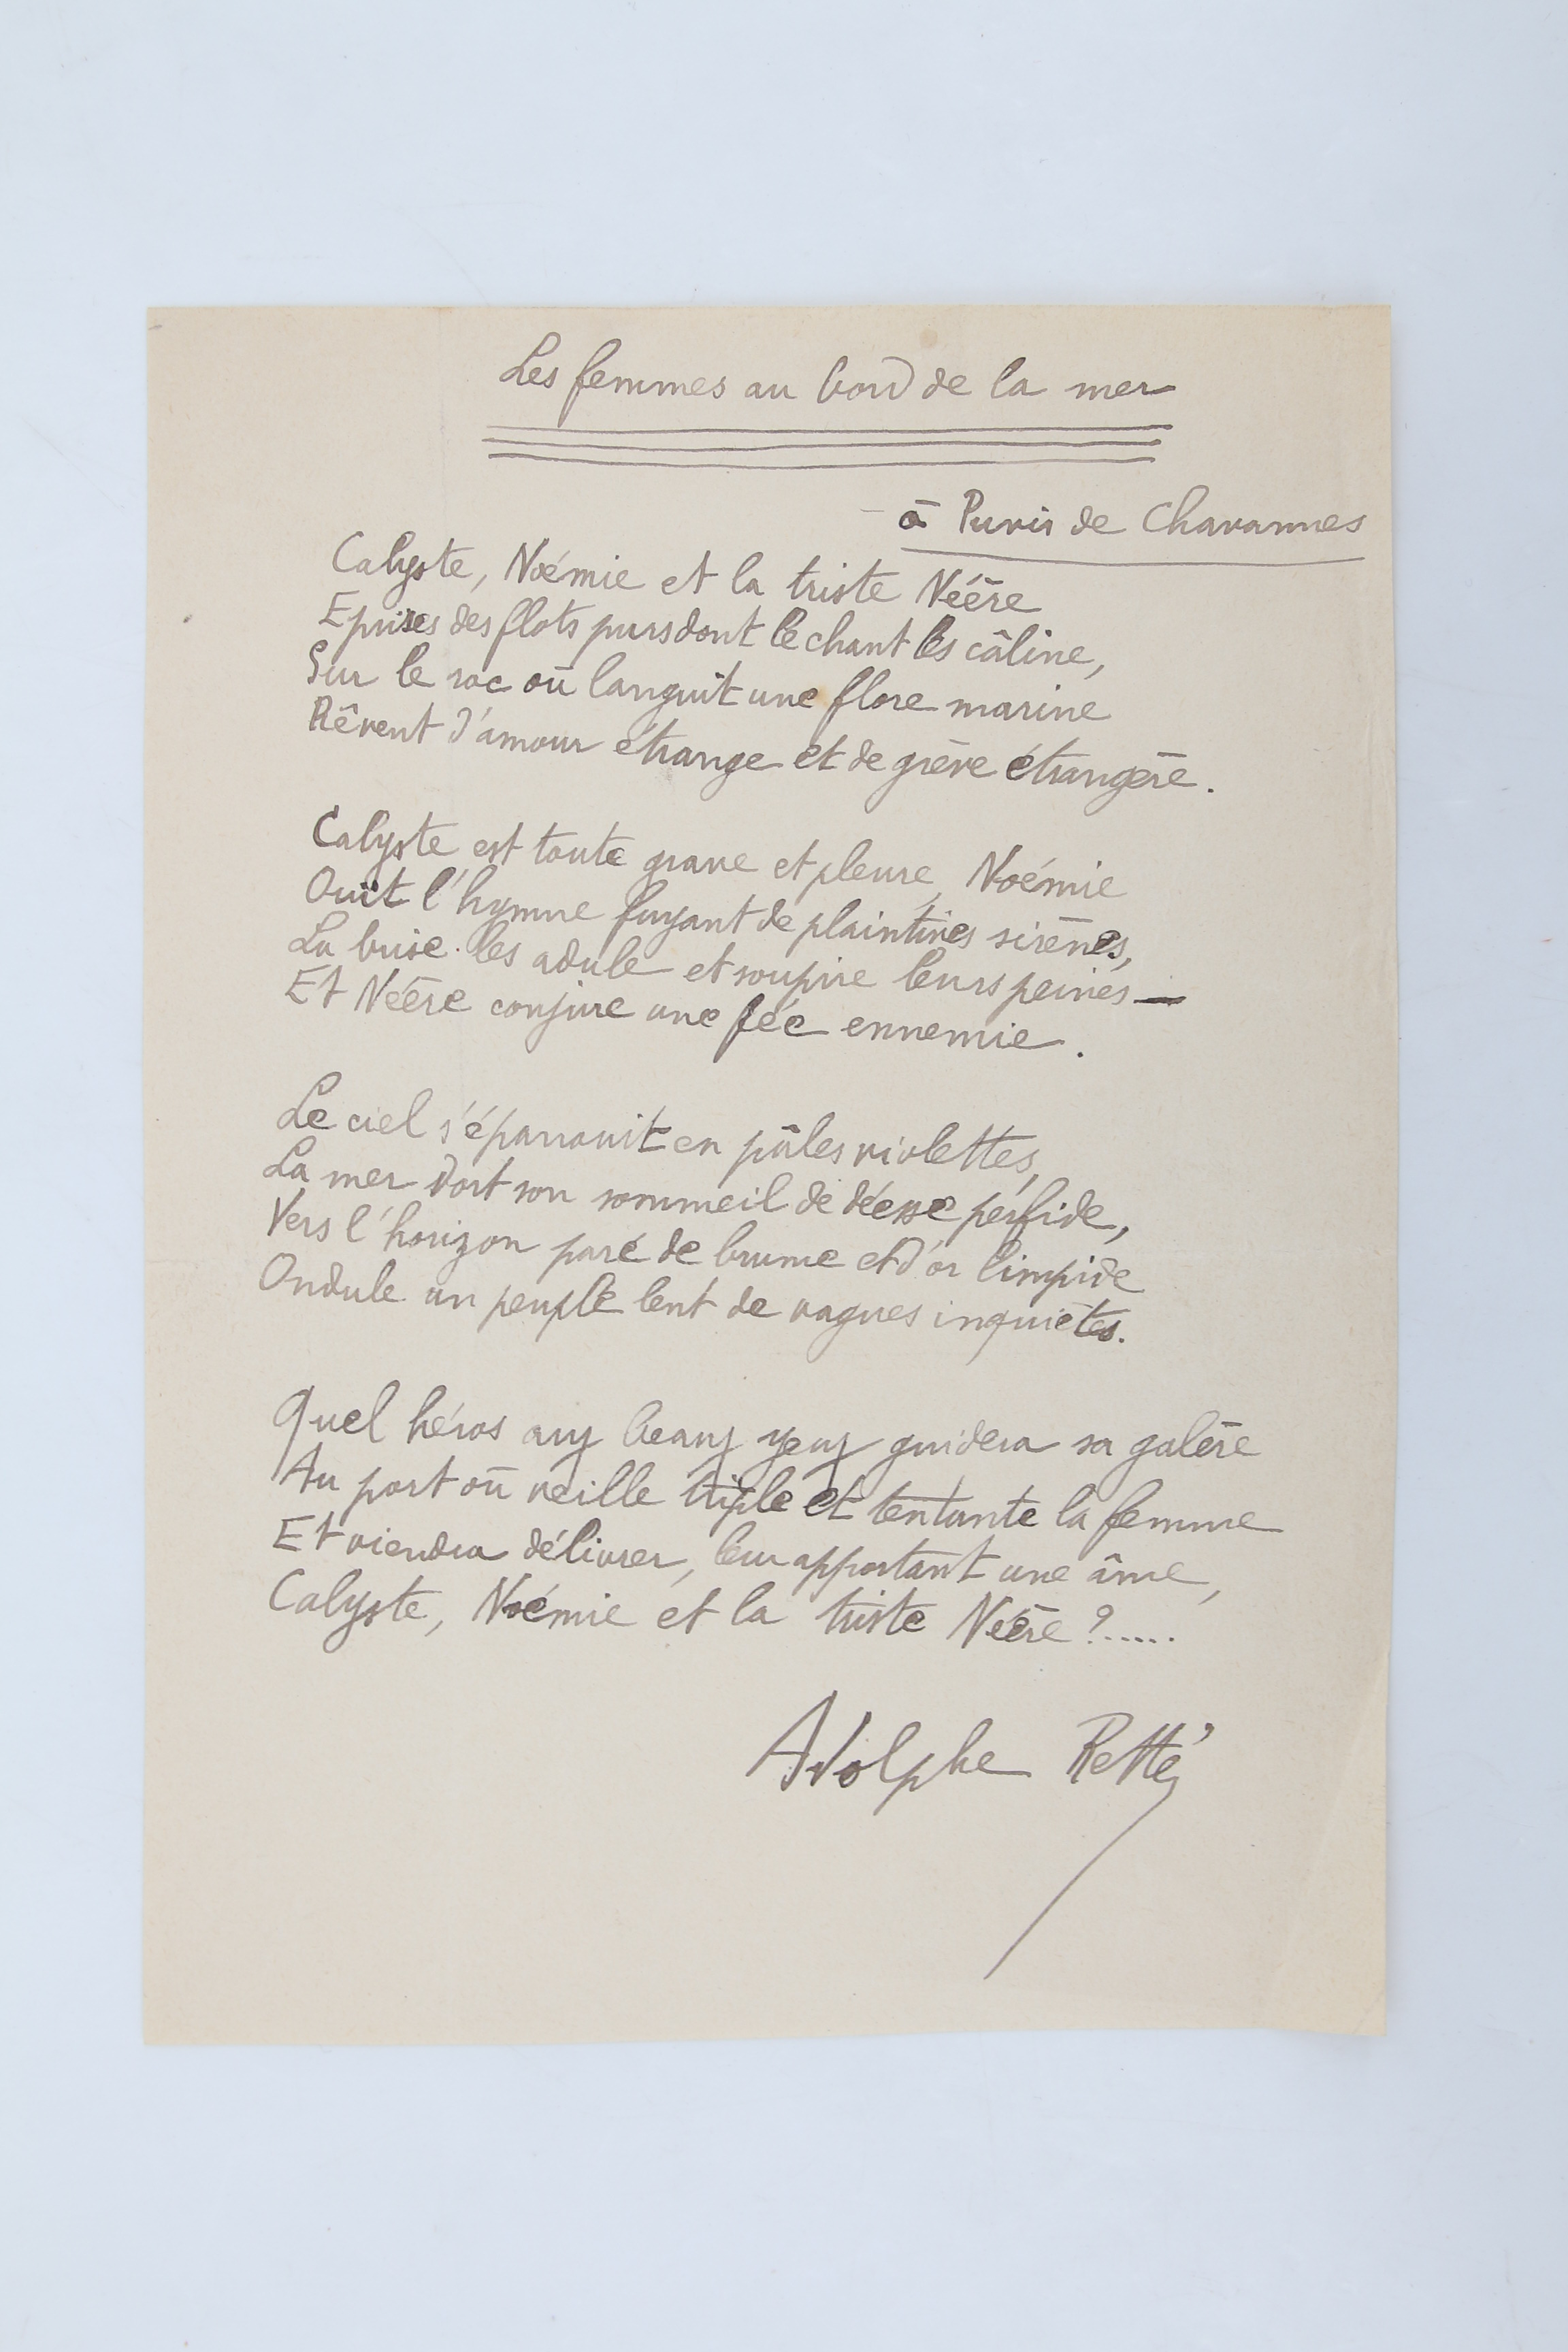 Les femmes au bord de la mer
à Puvis de Chavannes
Calyste, Noémie et la triste Néère
Eprises des flots purs dont le chant les câline,
Sur le roc où languit une flore marine
Rêvent d'amour étrange et de grève étrangère.
Calyste est toute grave et pleure, Noémie
Ouït l'hymne fuyant de plaintives sirènes,
La brise les adule et soupire leurs peines —
Et Néère conjure une fée ennemie.
Le ciel s'épanouit en pâles violettes,
La mer dort son sommeil de déesse perfide,
Vers l'horizon paré de brume et d'or limpide
Ondule un peuple lent de vagues inquiètes.
Quel héros aux beaux yeux guidera sa galère
Au port où veille triple et tentante la femme
Et viendra délivrer, leur apportant une âme,
Calyste, Noémie et la triste Néère ?.....
Adolphe Retté